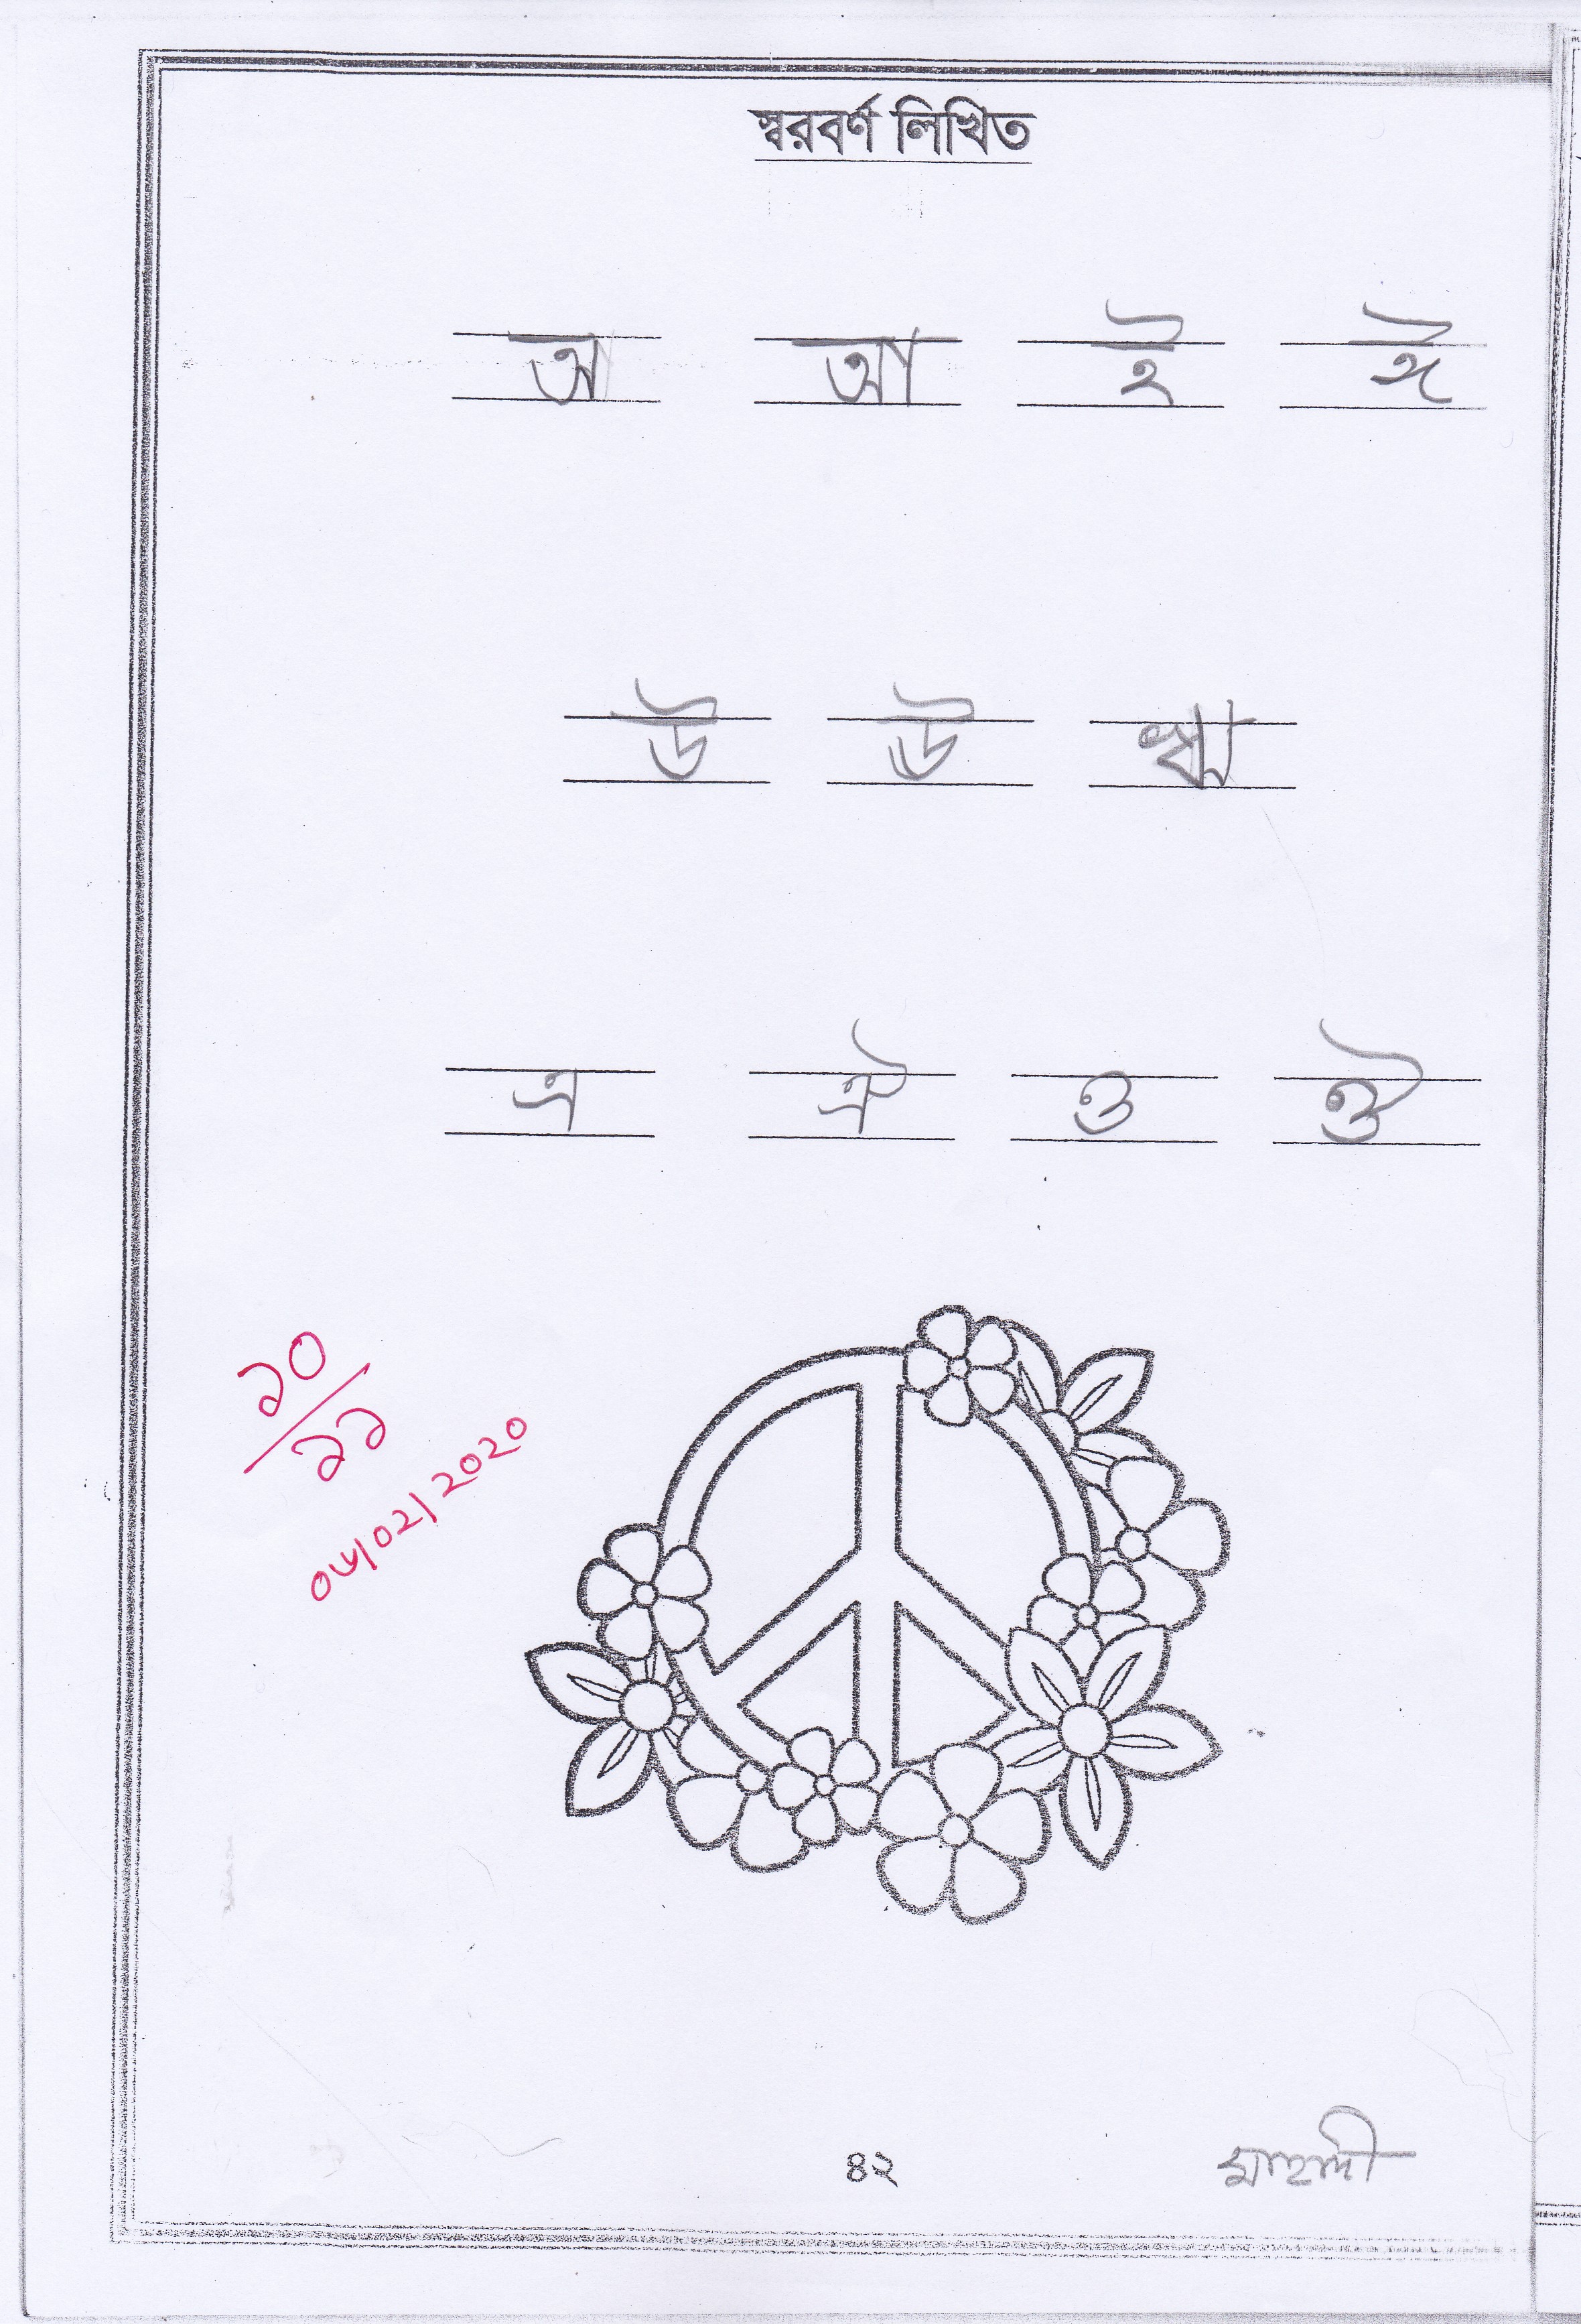 স্বরবর্ণ লিখিত
অ আ ই ঈ
উ ঊ ঋ
এ ঐ ও ঔ
১০
১১
০৬/০2/2020
৪২
মাহদী